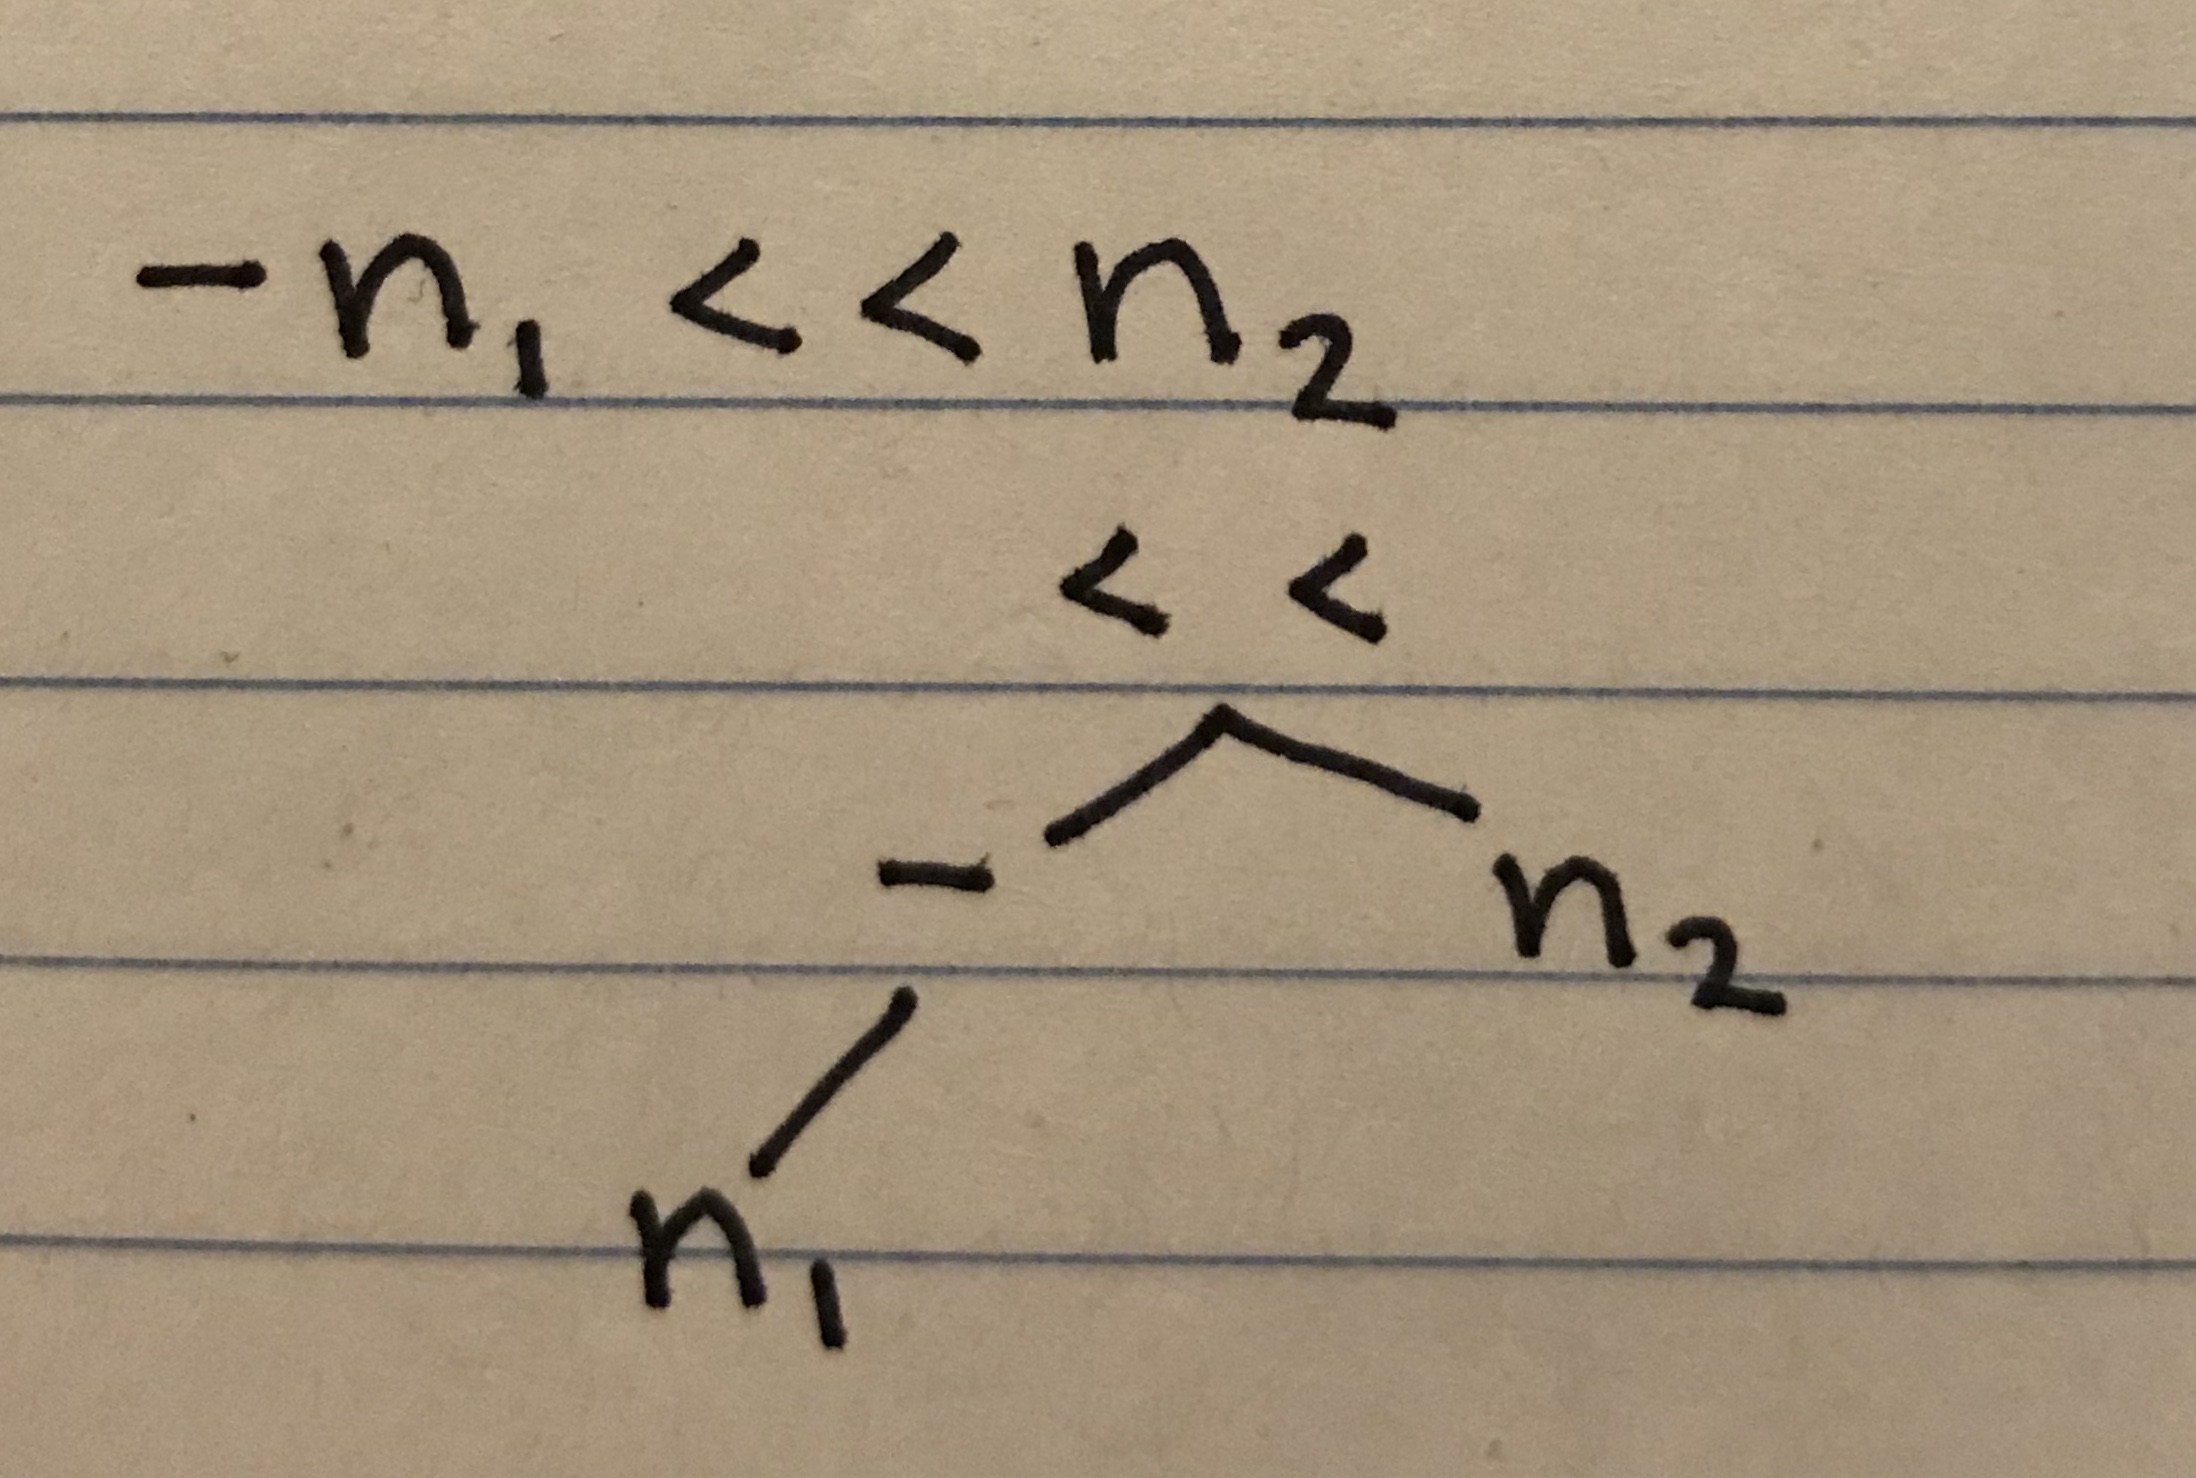 -n₁ << n₂
<<
- n₂
n₁